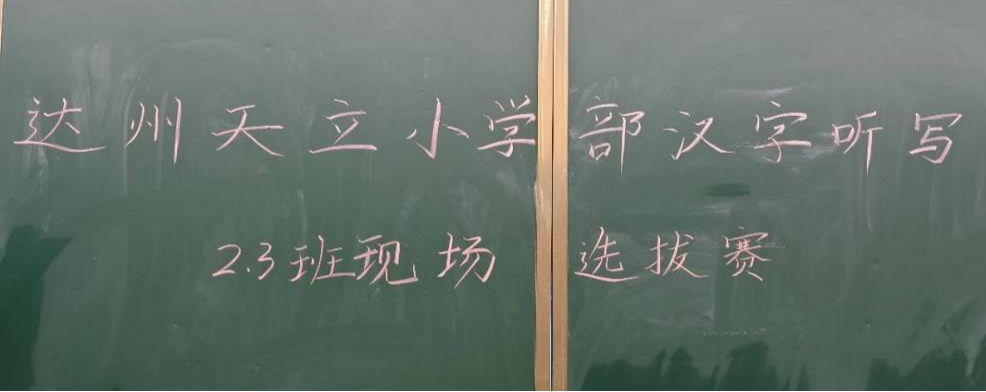 达州天立小学部汉字听写
2.3班现场选拔赛